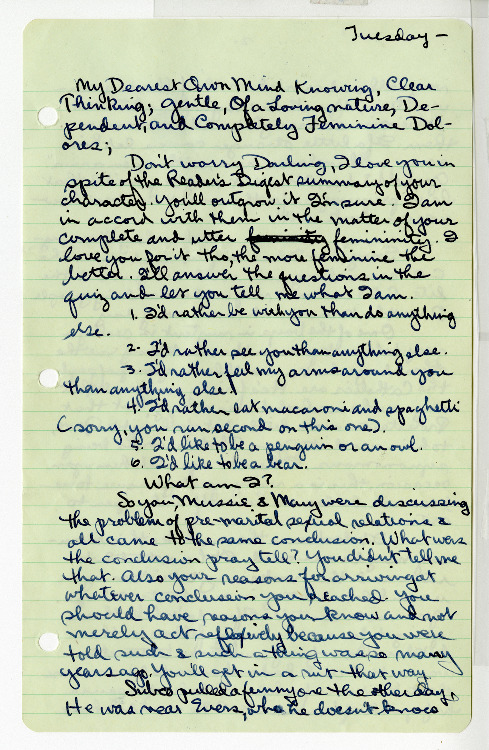 Tuesday —
My Dearest Own Mind Knowing, Clear
Thinking; gentle, Of a Loving nature, De-
pendent, and Completely Feminine Dol-
ores;
Don't worry Darling, I love you in
spite of the Reader's Digest summary of your
character. You'll outgrow it I'm sure. I am
in accord with them in the matter of your
complete and utter femininity. I
love you for it tho, the more feminine the
better. I'll answer the questions in the
quiz and let you tell me what I am.
1. I'd rather be with you than do anything
else.
2. I'd rather see you than anything else.
3. I'd rather feel my arms around you
than anything else!
4. I'd rather eat macaroni and spaghetti
(sorry, you run second on this one).
5. I'd like to be a penguin or an owl.
6. I'd like to be a bear.
What am I?
So you, Mussie & Mary were discussing
the problem of pre-marital sexual relations &
all came to the same conclusion. What was
the conclusion pray tell? You didn't tell me
that. Also your reasons for arriving at
whatever conclusion you reached. You
should have reasons you know and not
merely act reflexively because you were
told such & such a thing was so many
years ago. You'll get in a rut that way.
pulled a funny one the other day.
He was near Evers, who he doesn't know